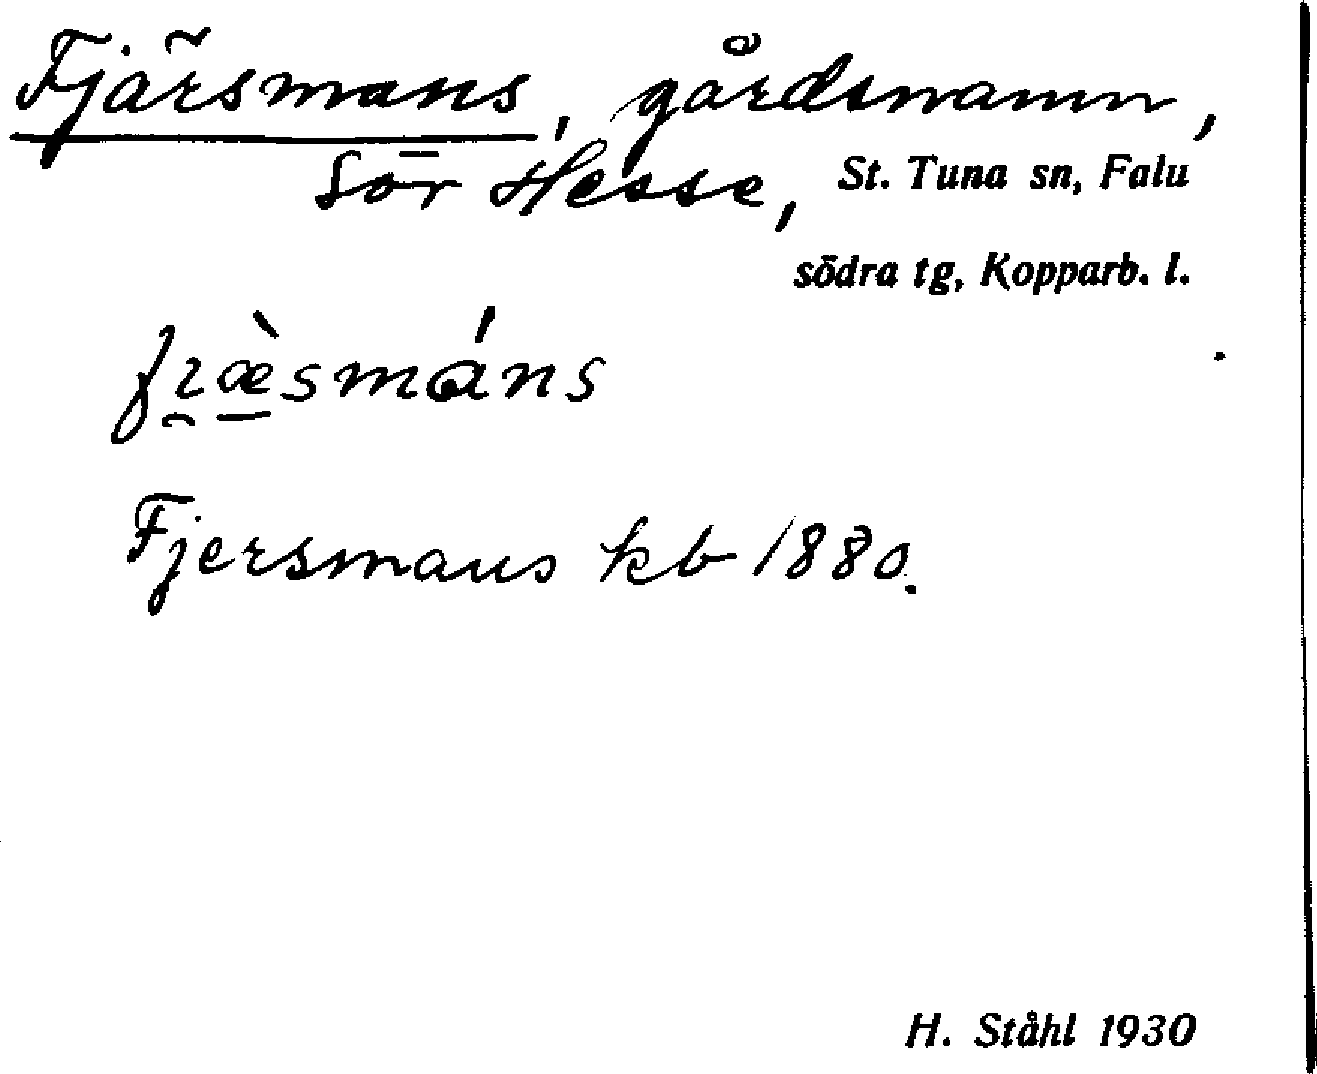 Fjärsmans, gårdsnamn,
Sör Hesse, St. Tuna sn, Falu
södra tg, Kopparb. l.
Fjersmans kb 1880.
H. Ståhl 1930